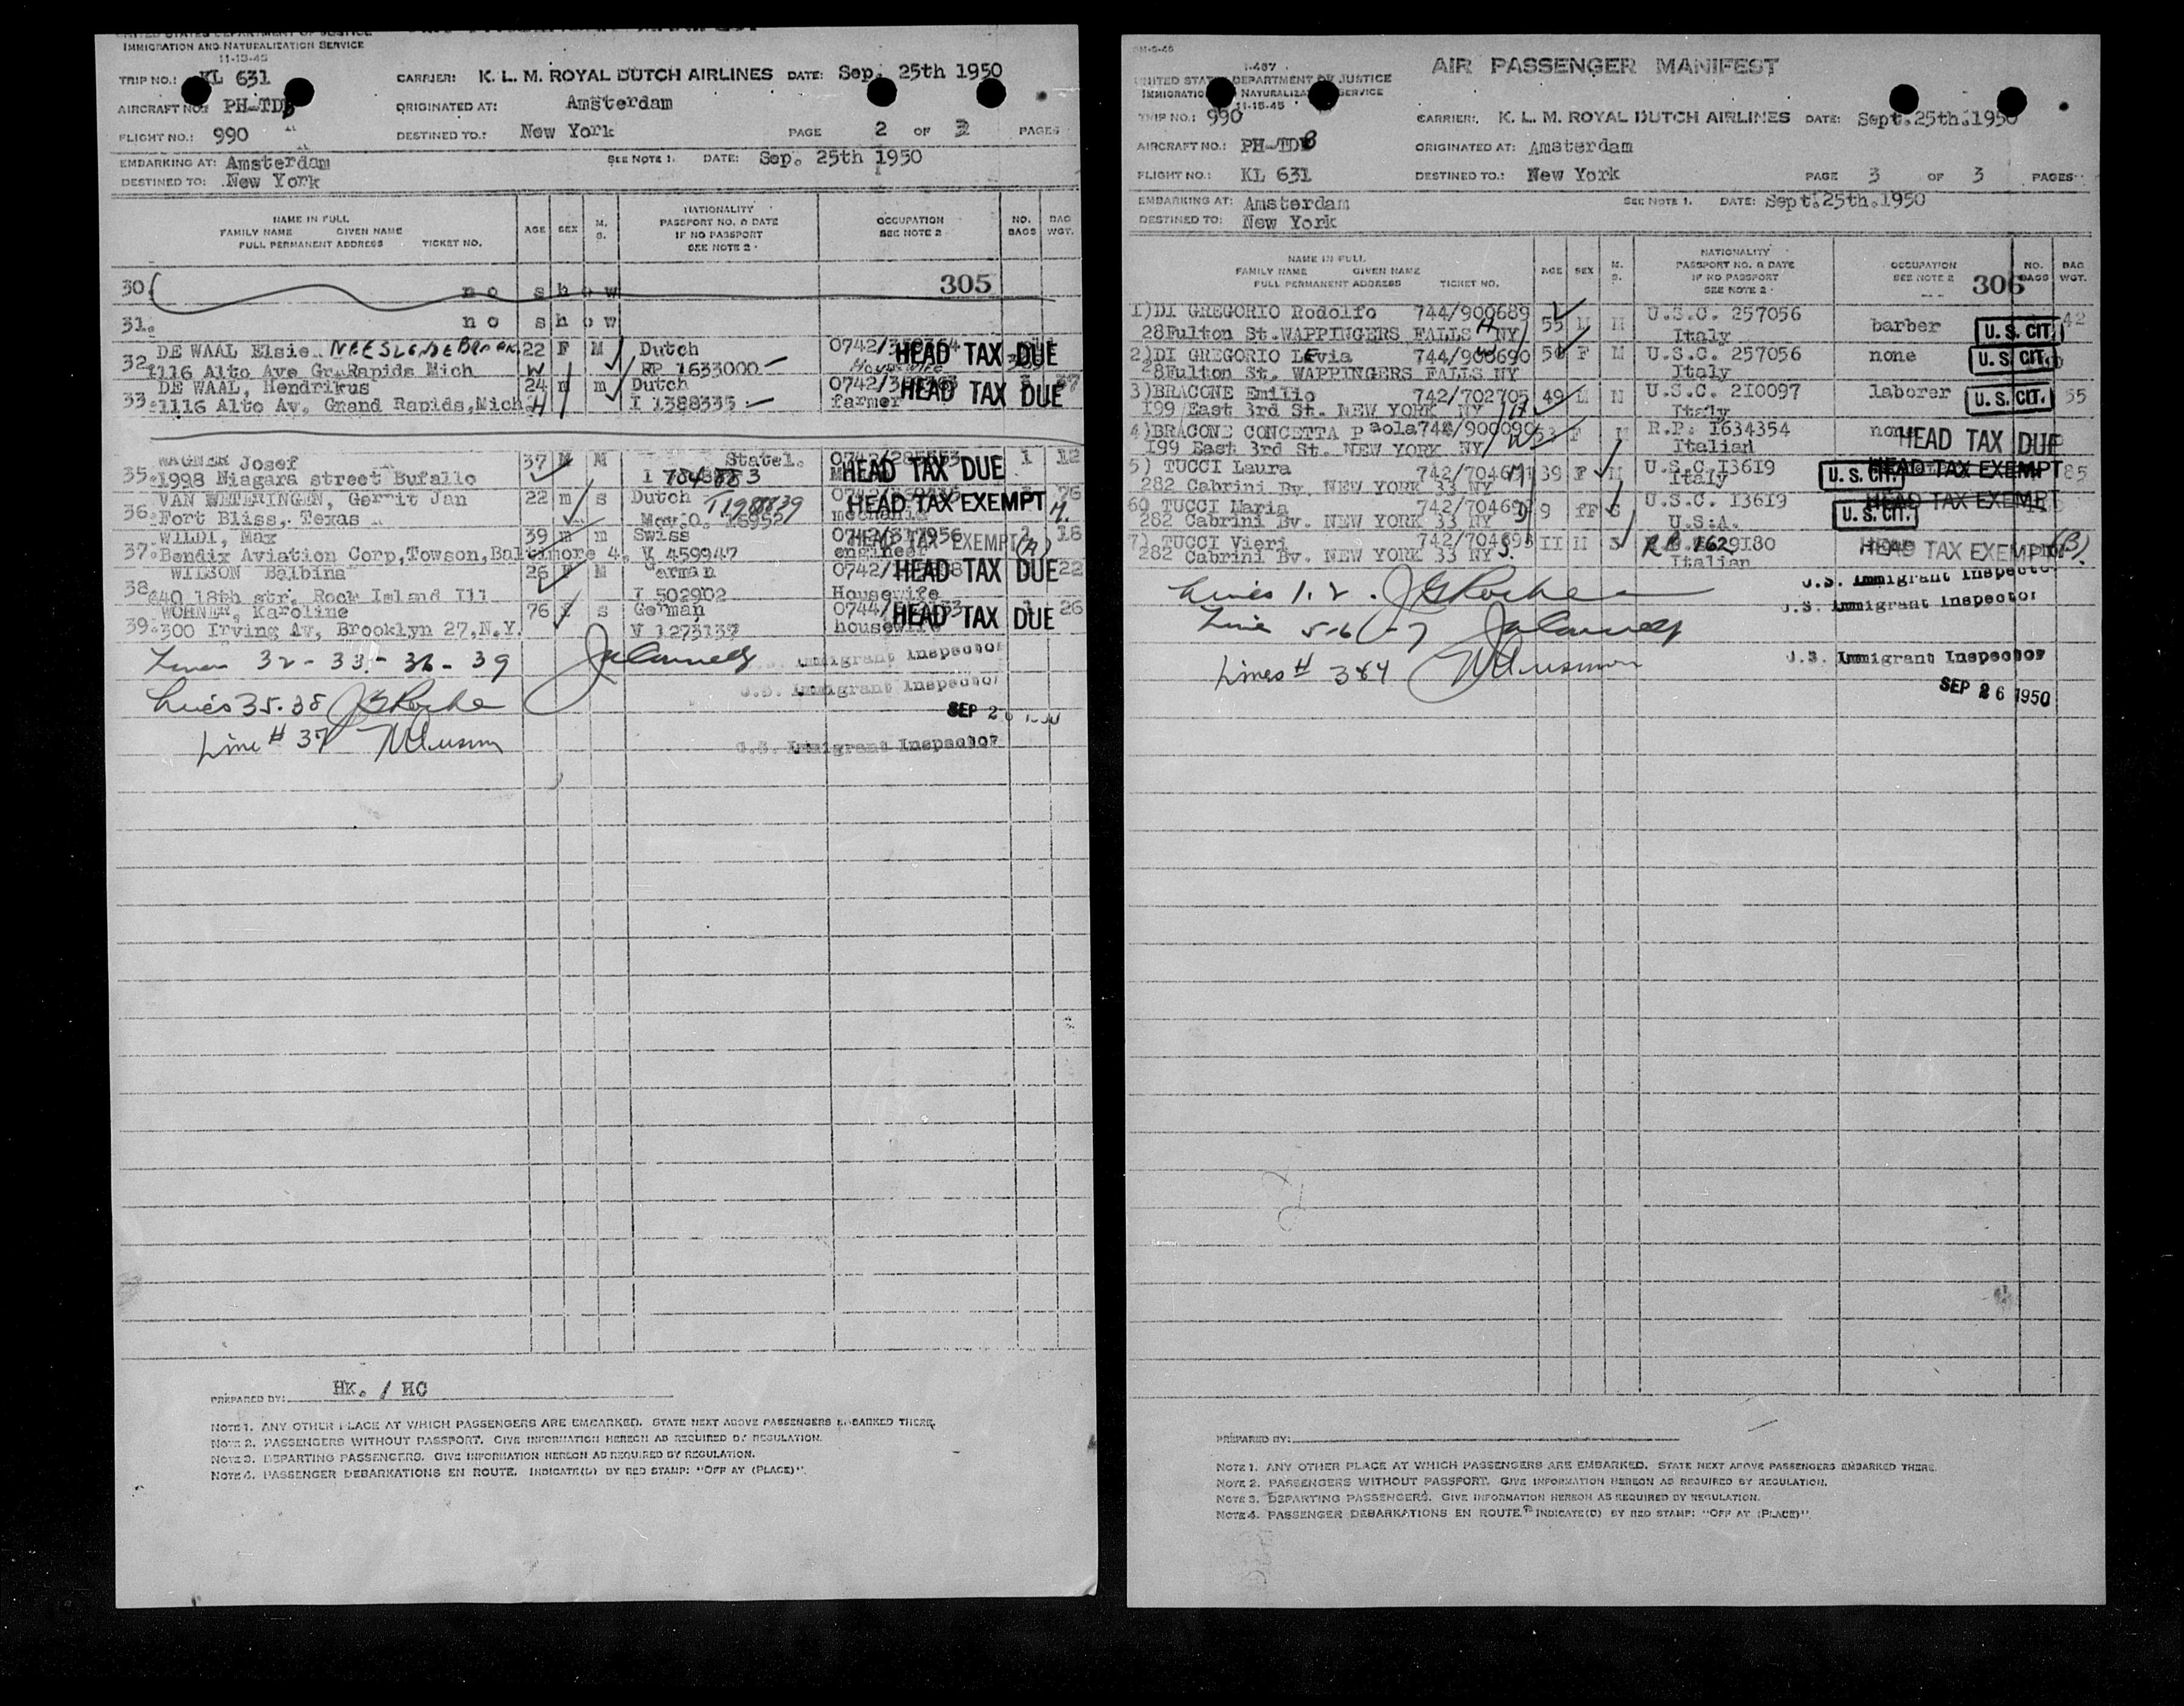 UNITED STATES DEPARTMENT OF JUSTICE
IMMIGRATION AND NATURALIZATION SERVICE
11-15-45
TRIP NO.: KL 631
CARRIER: K. L. M. ROYAL DUTCH AIRLINES DATE: Sep. 25th 1950
AIRCRAFT NO.: PH-TDB
ORIGINATED AT: Amsterdam
FLIGHT NO.: 990
DESTINED TO.: New York
PAGE 2 OF 3 PAGES
EMBARKING AT: Amsterdam
SEE NOTE 1. DATE: Sep. 25th 1950
DESTINED TO: New York
NAME IN FULL
FAMILY NAME GIVEN NAME
FULL PERMANENT ADDRESS TICKET NO.
AGE
SEX
M. S.
NATIONALITY
PASSPORT NO. & DATE
IF NO PASSPORT
SEE NOTE 2
OCCUPATION
SEE NOTE 2
NO. BAGS
BAG WGT.
30. no show 305
31. no show
32. DE WAAL Elsie 22 F M Dutch HEAD TAX DUE
1116 Alto Ave Gr.Rapids Mich W RP 1633000 Housewife
33. DE WAAL, Hendrikus 24 m m Dutch HEAD TAX DUE 37
1116 Alto Av, Grand Rapids, Mich. H I 1388335 farmer
35. WAGNER Josef 37 M M Statel. HEAD TAX DUE 1 12
1998 Niagara street Bufallo
36. VAN WETERINGEN, Gerrit Jan 22 m s Dutch HEAD TAX EXEMPT 76
Fort Bliss, Texas mechanic
37. WILDI, Max 39 m m Swiss HEAD TAX EXEMPT (A) 18
Bendix Aviation Corp, Towson, Baltimore 4, V 459947 engineer
38. WILSON Balbina 26 F M German HEAD TAX DUE 22
640 18th str. Rock Island Ill I 502902 Housewife
39. WOHNER, Karoline 76 s German HEAD TAX DUE 26
300 Irving Av, Brooklyn 27, N.Y. V 1273137 housewife
Lines 32-33-36-39
U.S. Immigrant Inspector
Lines 35.38 J G Roche
U.S. Immigrant Inspector
SEP 26 1950
Line # 37
U.S. Immigrant Inspector
PREPARED BY: HK. / HC
NOTE 1. ANY OTHER PLACE AT WHICH PASSENGERS ARE EMBARKED. STATE NEXT ABOVE PASSENGERS EMBARKED THERE.
NOTE 2. PASSENGERS WITHOUT PASSPORT. GIVE INFORMATION HEREON AS REQUIRED BY REGULATION.
NOTE 3. DEPARTING PASSENGERS. GIVE INFORMATION HEREON AS REQUIRED BY REGULATION.
NOTE 4. PASSENGER DEBARKATIONS EN ROUTE. INDICATE(D) BY RED STAMP: "OFF AT (PLACE)".
I-467
AIR PASSENGER MANIFEST
UNITED STATES DEPARTMENT OF JUSTICE
IMMIGRATION NATURALIZATION SERVICE
11-15-45
TRIP NO.: 990
CARRIER: K. L. M. ROYAL DUTCH AIRLINES DATE: Sept.25th.1950
AIRCRAFT NO.: PH-TDB
ORIGINATED AT: Amsterdam
FLIGHT NO.: KL 631
DESTINED TO.: New York
PAGE 3 OF 3 PAGES
EMBARKING AT: Amsterdam
SEE NOTE 1. DATE: Sept.25th.1950
DESTINED TO: New York
NAME IN FULL
FAMILY NAME GIVEN NAME
FULL PERMANENT ADDRESS TICKET NO.
AGE
SEX
M. S.
NATIONALITY
PASSPORT NO. & DATE
IF NO PASSPORT
SEE NOTE 2
OCCUPATION
SEE NOTE 2
306
NO. BAGS
BAG WGT.
1)DI GREGORIO Rodolfo 744/900689 55 M M U.S.C. 257056 barber U. S. CIT. 42
28Fulton St.WAPPINGERS FALLS NY Italy
2)DI GREGORIO Levia 744/900690 50 F M U.S.C. 257056 none U. S. CIT.
28Fulton St. WAPPINGERS FALLS NY Italy
3)BRACONE Emilio 742/702705 49 M M U.S.C. 210097 laborer U. S. CIT. 55
199 East 3rd St. NEW YORK NY Italy
4)BRACONE CONCETTA Paola 53 F M R.P. 1634354 none HEAD TAX DUE
199 East 3rd St. NEW YORK NY Italian
5) TUCCI Laura 39 F M U.S.C. 13619 U. S. CIT. HEAD TAX EXEMPT 85
282 Cabrini Bv. NEW YORK 33 NY Italy
6) TUCCI Maria 9 fF S U.S.C. 13619 U. S. CIT. HEAD TAX EXEMPT
282 Cabrini Bv. NEW YORK 33 NY U.S.A.
7) TUCCI Vieri 742/704693 11 M S HEAD TAX EXEMPT (B)
282 Cabrini Bv. NEW YORK 33 NY Italian
Lines 1.2. J G Roche
U.S. Immigrant Inspector
U.S. Immigrant Inspector
Line 5-6-7
Lines # 3&4
U.S. Immigrant Inspector
SEP 26 1950
PREPARED BY:
NOTE 1. ANY OTHER PLACE AT WHICH PASSENGERS ARE EMBARKED. STATE NEXT ABOVE PASSENGERS EMBARKED THERE.
NOTE 2. PASSENGERS WITHOUT PASSPORT. GIVE INFORMATION HEREON AS REQUIRED BY REGULATION.
NOTE 3. DEPARTING PASSENGERS. GIVE INFORMATION HEREON AS REQUIRED BY REGULATION.
NOTE 4. PASSENGER DEBARKATIONS EN ROUTE. INDICATE(D) BY RED STAMP: "OFF AT (PLACE)".